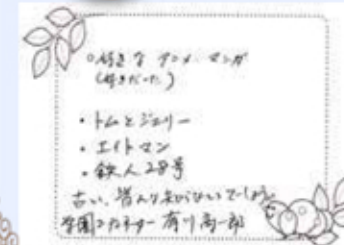 ○好きな アニメ、マンガ
(好きだった)
・トムとジェリー
・エイトマン
・鉄人28号
古い、皆んな知らないでしょう。
学園コーディネーター 有川